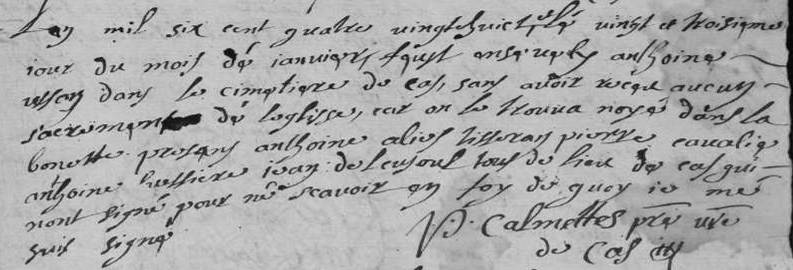 Lan mil six cent quatre vingtz huict et le vingt et troisieme
iour du mois de ianvier, fust ensevely anthoine
dans le cimetiere de cas, sans avoir receu aucun
sacrement de leglisse, car on le trouva noyé dans la
bonette. presans anthoine alies tisseran pierre cavalie
anthoine bessiere iean delcusoul tous de lieu de cas qui
nont signé pour ne scavoir en foy de quoy ie me
suis signé
Calmettes pre vre
de Cas